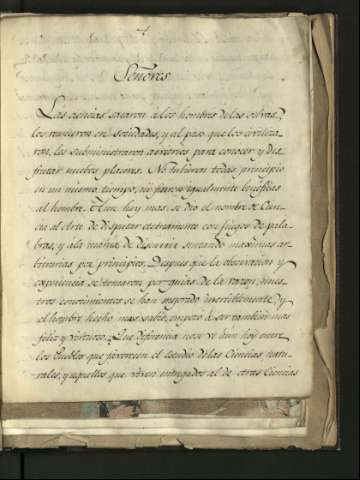 Señores
Las ciencias sacaron à los hombres de las selvas,
los reunieron en sociedades, y al paso que los civiliza-
ron, les subministraron arvitrios para conocer y dis
frutar nuebos placeres. No tubieron todas principio
en un mismo tiempo, ni fueron igualmente beneficas
al hombre. Aun hay mas: se dio el nombre de Cien-
cia al Arte de disputar eternamente con juegos de pala-
bras, y a la mania de discurrir sentando maximas ar-
bitrarias por principios. Despues que la observacion y
experiencia se tomaron por guias de la razon, nues-
tros conocimientos se han mejorado increiblemente, y
el hombre hecho mas sabio, empezó à ser tambien mas
feliz y virtuoso. Que diferencia no se ve aun hoy entre
los Pueblos que favorecen el estudio de las Ciencias natu-
rales, y aquellos que viven entregados al de otras Ciencias